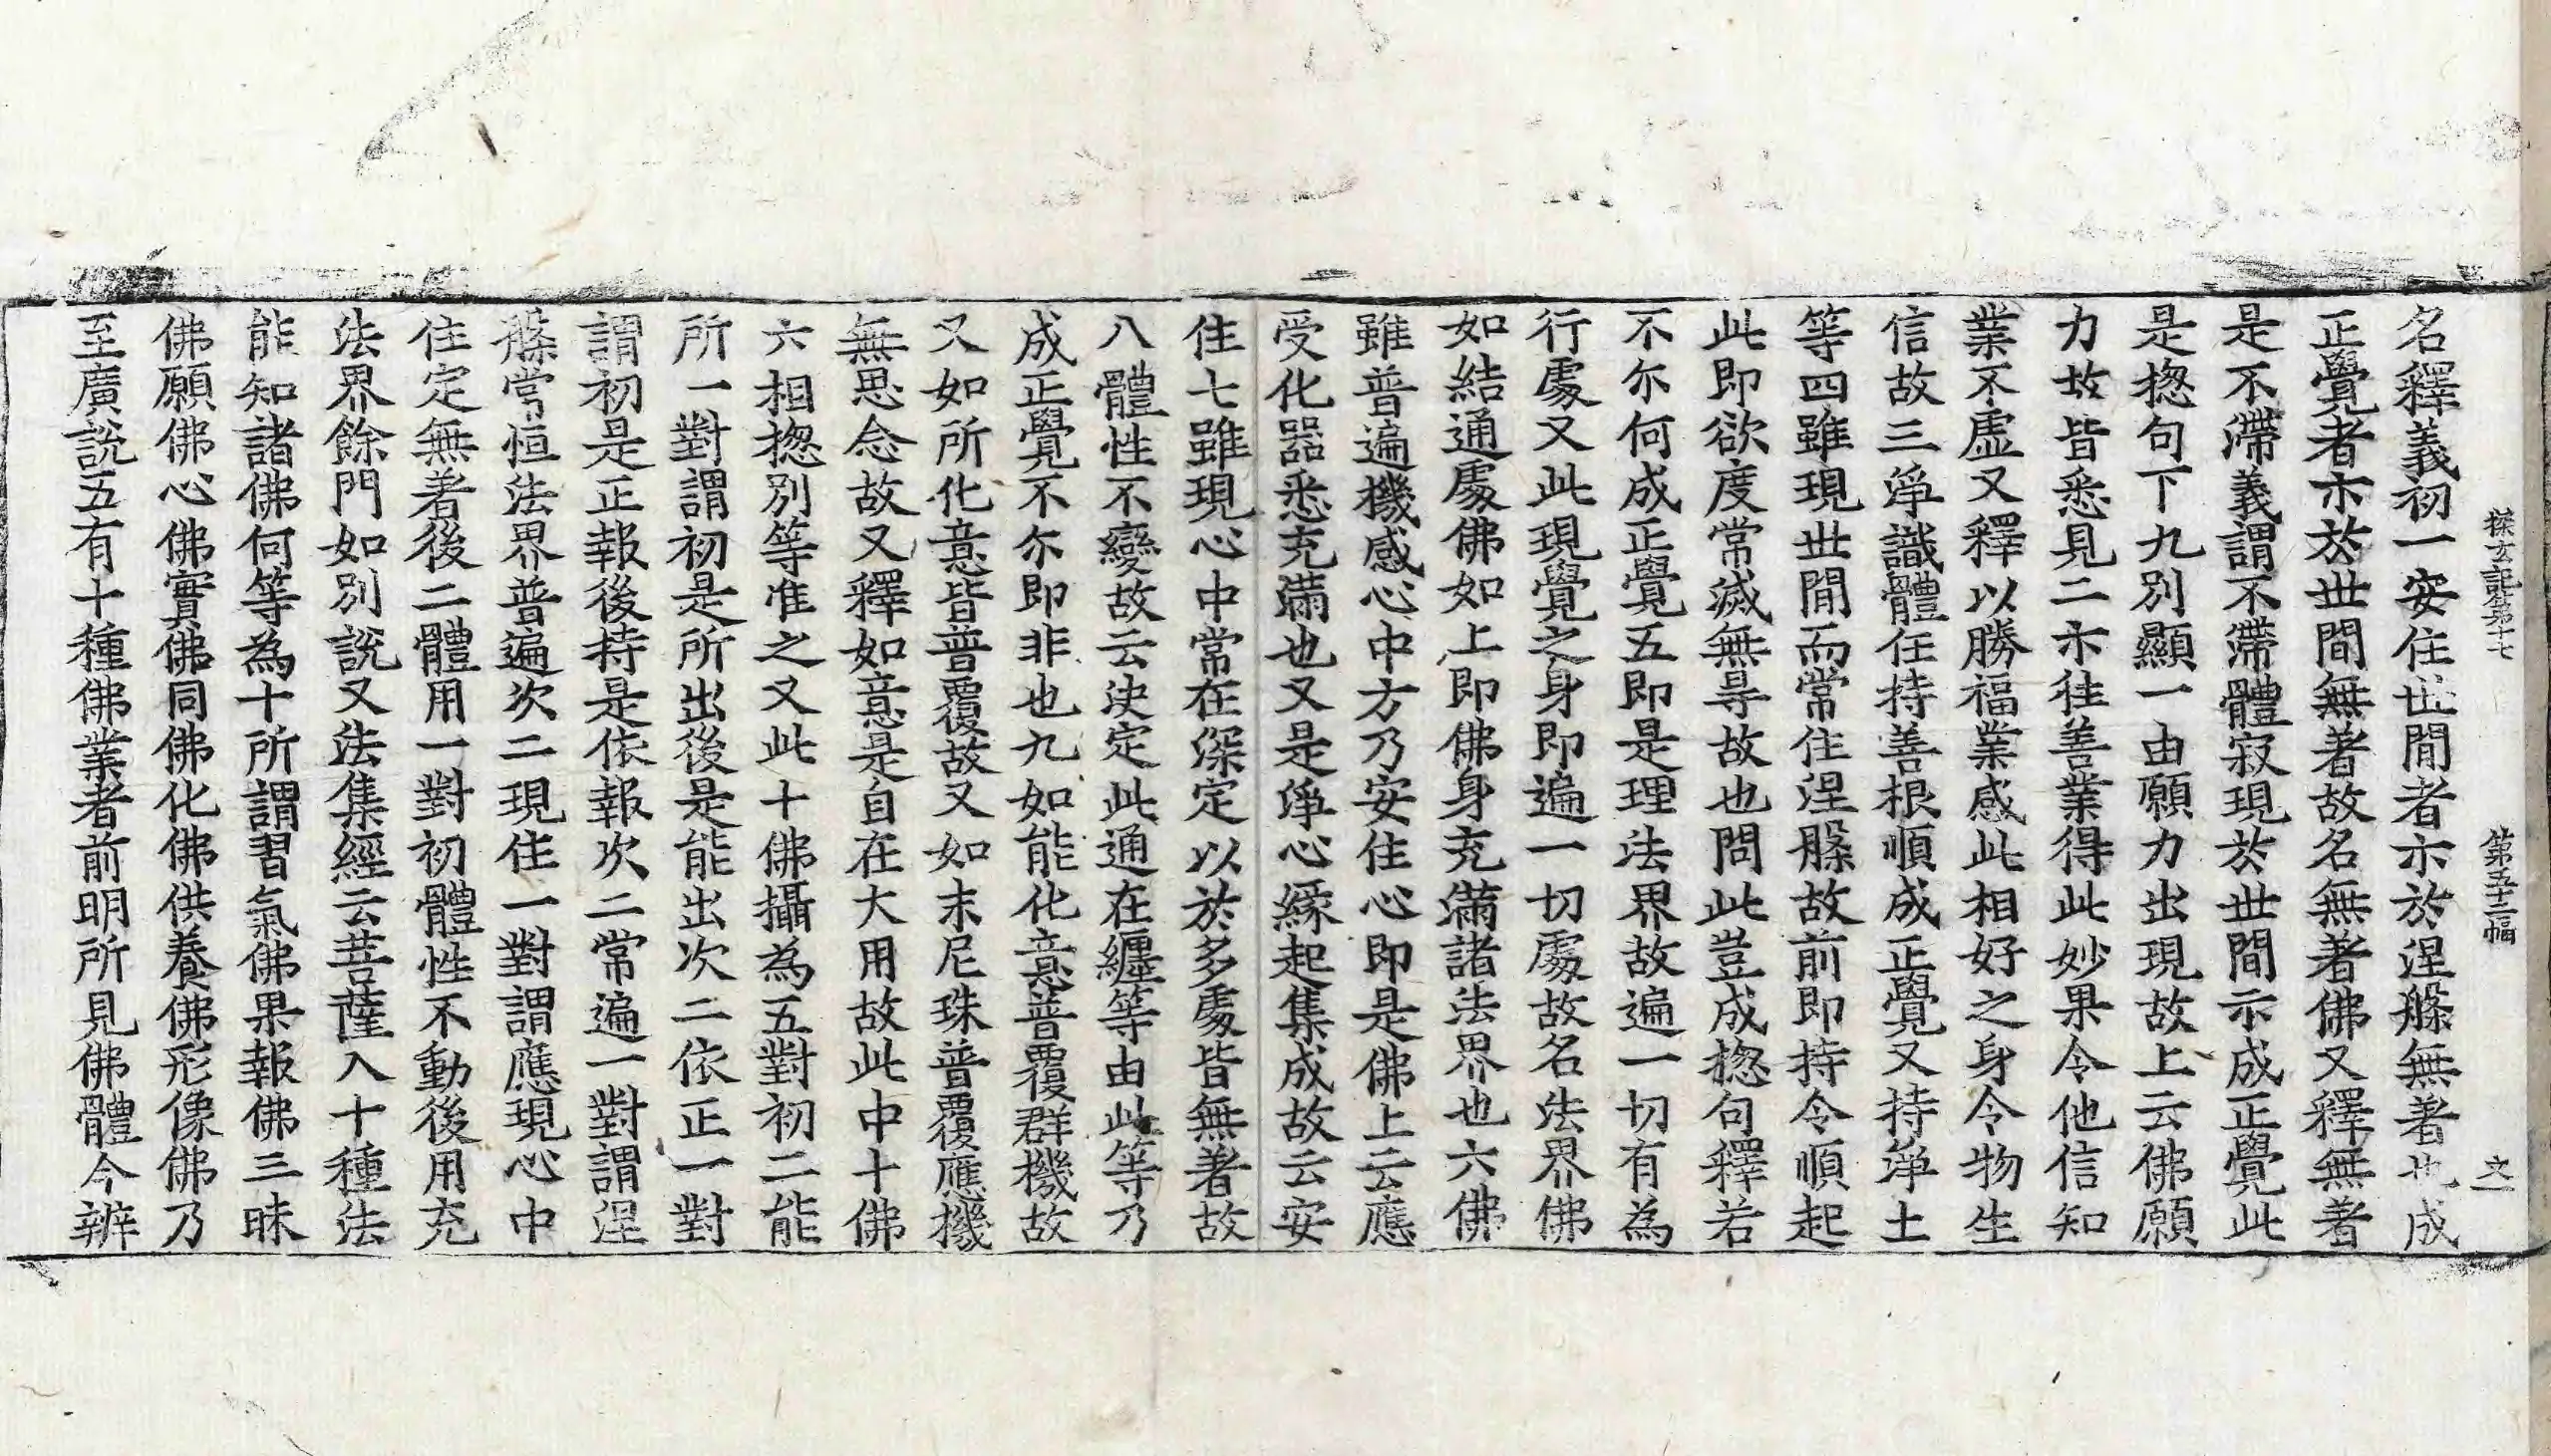 探玄記第十七 第五十二幅
名釋義初一安住世閒者亦於涅槃無著也成
正覺者亦於世間無著故名無著佛又釋無著
是不滯義謂不滯體寂現於世間示成正覺此
是揔句下九別顯一由願力出現故上云佛願
力故皆悉見二亦往善業得此妙果令他信知
業不虛又釋以勝福業感此相好之身令物生
信故三淨識體任持善根順成正覺又持淨土
等四雖現世間而常住涅槃故前即持令順起
此即欲度常滅無㝵故也問此豈成揔句釋若
不尓何成正覺五即是理法界故遍一切有為
行處又此現覺之身即遍一切處故名法界佛
如結通處佛如上即佛身充滿諸法界也六佛
雖普遍機感心中方乃安住心即是佛上云應
受化器悉充滿也又是淨心緣起集成故云安
住七雖現心中常在深定以於多處皆無著故
八體性不變故云決定此通在纏等由此等乃
成正覺不尓即非也九如能化意普覆群機故
又如所化意皆普覆故又如末尼珠普覆應機
無思念故又釋如意是自在大用故此中十佛
六相揔別等准之又此十佛攝為五對初二能
所一對謂初是所出後是能出次二依正一對
謂初是正報後持是依報次二常遍一對謂涅
槃常恒法界普遍次二現住一對謂應現心中
住定無著後二體用一對初體性不動後用充
法界餘門如別說又法集經云菩薩入十種法
能知諸佛何等為十所謂習氣佛果報佛三昧
佛願佛心佛實佛同佛化佛供養佛形像佛乃
至廣說五有十種佛業者前明所見佛體今辨